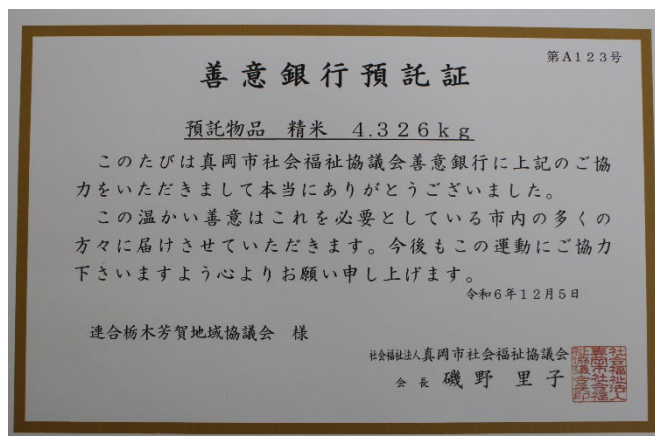 第A123号
善意銀行預託証
預託物品　精米　4.326kg
このたびは真岡市社会福祉協議会善意銀行に上記のご協
力をいただきまして本当にありがとうございました。
この温かい善意はこれを必要としている市内の多くの
方々に届けさせていただきます。今後もこの運動にご協力
下さいますよう心よりお願い申し上げます。
令和6年12月5日
連合栃木芳賀地域協議会　様
社会福祉法人真岡市社会福祉協議会
会長　磯野　里子
社会福祉法人
真岡市社会福
祉協議会長印